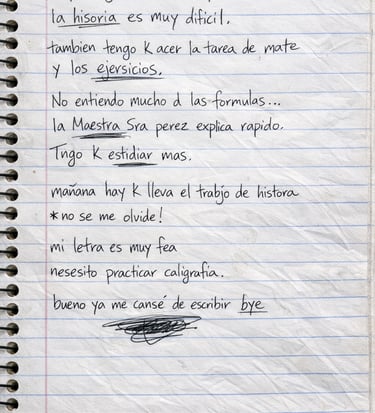 la hisoria es muy dificil.
tambien tengo K acer la tarea de mate
y los ejersicios.
No entiendo mucho d las formulas...
la Maestra Sra perez explica rapido.
Tngo K estidiar mas.
mañana hay K lleva el trabjo de histora
*no se me olvide!
mi letra es muy fea
nesesito practicar caligrafia.
bueno ya me cansé de escribir bye